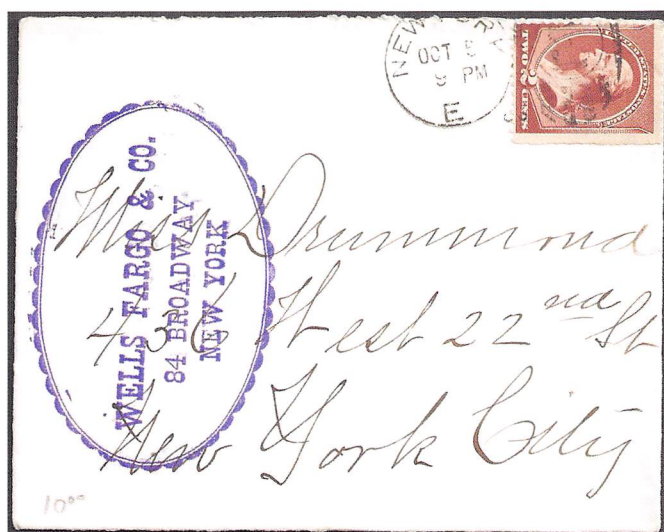 NEW YORK
OCT 5
9 PM
E
TWO 2 CENTS
WELLS FARGO & CO.
84 BROADWAY
NEW YORK
Miss Drummond
436 West 22nd St
New York City
10⁰⁰